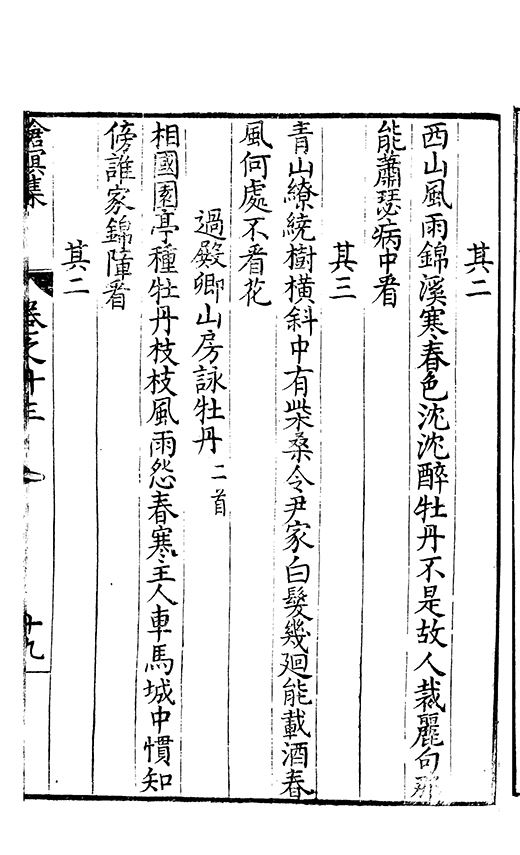 其二
西山風雨錦溪寒春色沈沈醉牡丹不是故人裁麗句那
能蕭瑟病中看
其三
青山繚繞樹橫斜中有柴桑令尹家白髮幾廻能載酒春
風何處不看花
過殿卿山房詠牡丹二首
相國園亭種牡丹枝枝風雨怨春寒主人車馬城中慣知
傍誰家錦障看
其二
滄溟集 卷之十三 十九